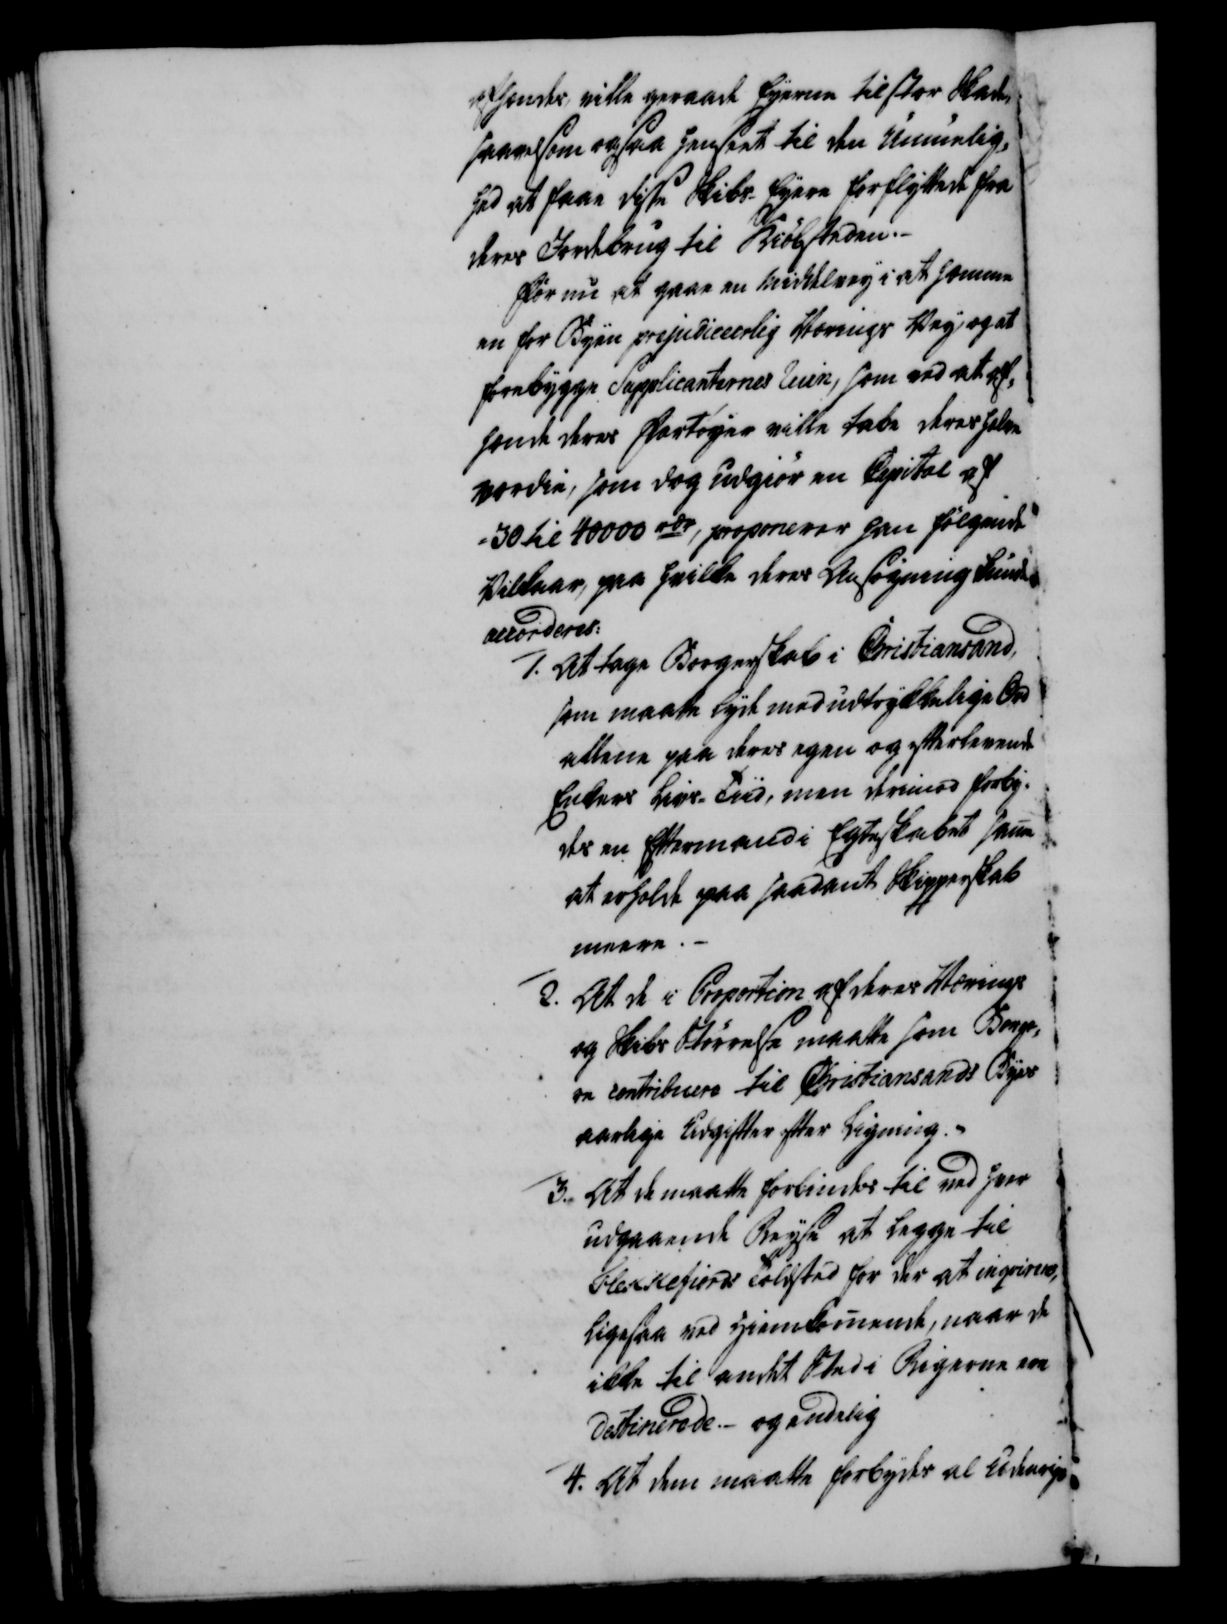 afhændes, ville geraade Eyerne til stor Skade,
saavelsom ogsaa henseet til den Umuelig-
hed at faae disse Skibs-Eyere forflyttede fra
deres Jordebrug til Kiøbstæden.-
For nu at gaae en Middelvey i at hæmme
en for Byen prejudiceerlig Nærings Vey, og at
forebygge Supplicanternes Ruin, som ved at af-
hænde deres Fartøyer ville tabe deres halve
værdie, som dog udgiør en Capital af
- 30 til 40000 rdr, proponerer han følgende
Vilkaar, paa hvilke deres Ansøgning kunde
accorderes:
1. At tage Borgerskab i Christiansand,
som maatte lyde med udtrykkelige Ord
allene paa deres egen og efterlevende
Enkers Livs-Tiid, men derimod forby-
des en Eftermand i Egteskabet samme
at erholde paa saadant Skipperskab
meere.-
2. At de i Proportion af deres Nærings
og Skibs Størrelse maatte som Borge-
re contribuere til Christiansands Byes
aarlige Udgifter efter Ligning.-
3. At de maatte forbindes til ved hver
udgaaende Reyse at legge til
Flekkefiords Toldsted for der at inqvireres,
ligesaa ved Hiemkommende, naar de
ikke til andet Sted i Rigerne ere
destinerede.- og endelig
4. At dem maatte forbydes al Udenrigs